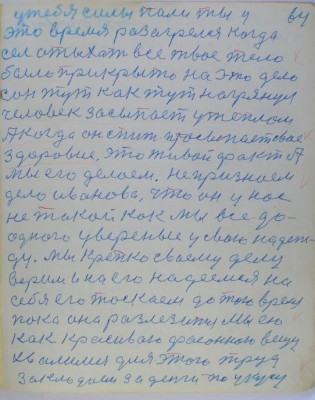 у тебя силы пали ты у
это время разагрелся когда
сел отыхать все твое тело
было прикрыто на это дело
сон тут как тут нагрянул
человек засыпает у теплом
А когда он спит просыпает свае
здоровие, это живой факт А
мы его делаем. непризнаем
дело иванова, что он у нос
не такой как мы все до-
одного увереные у свою надеж-
ду. мы крепко своему делу
верим и на его надеемся на
себя его тоскаем до того время
пока она разлезится мы ею
как красиваю фасонною вещу
хвалимся для этого труд
закладаем за денги по укусу